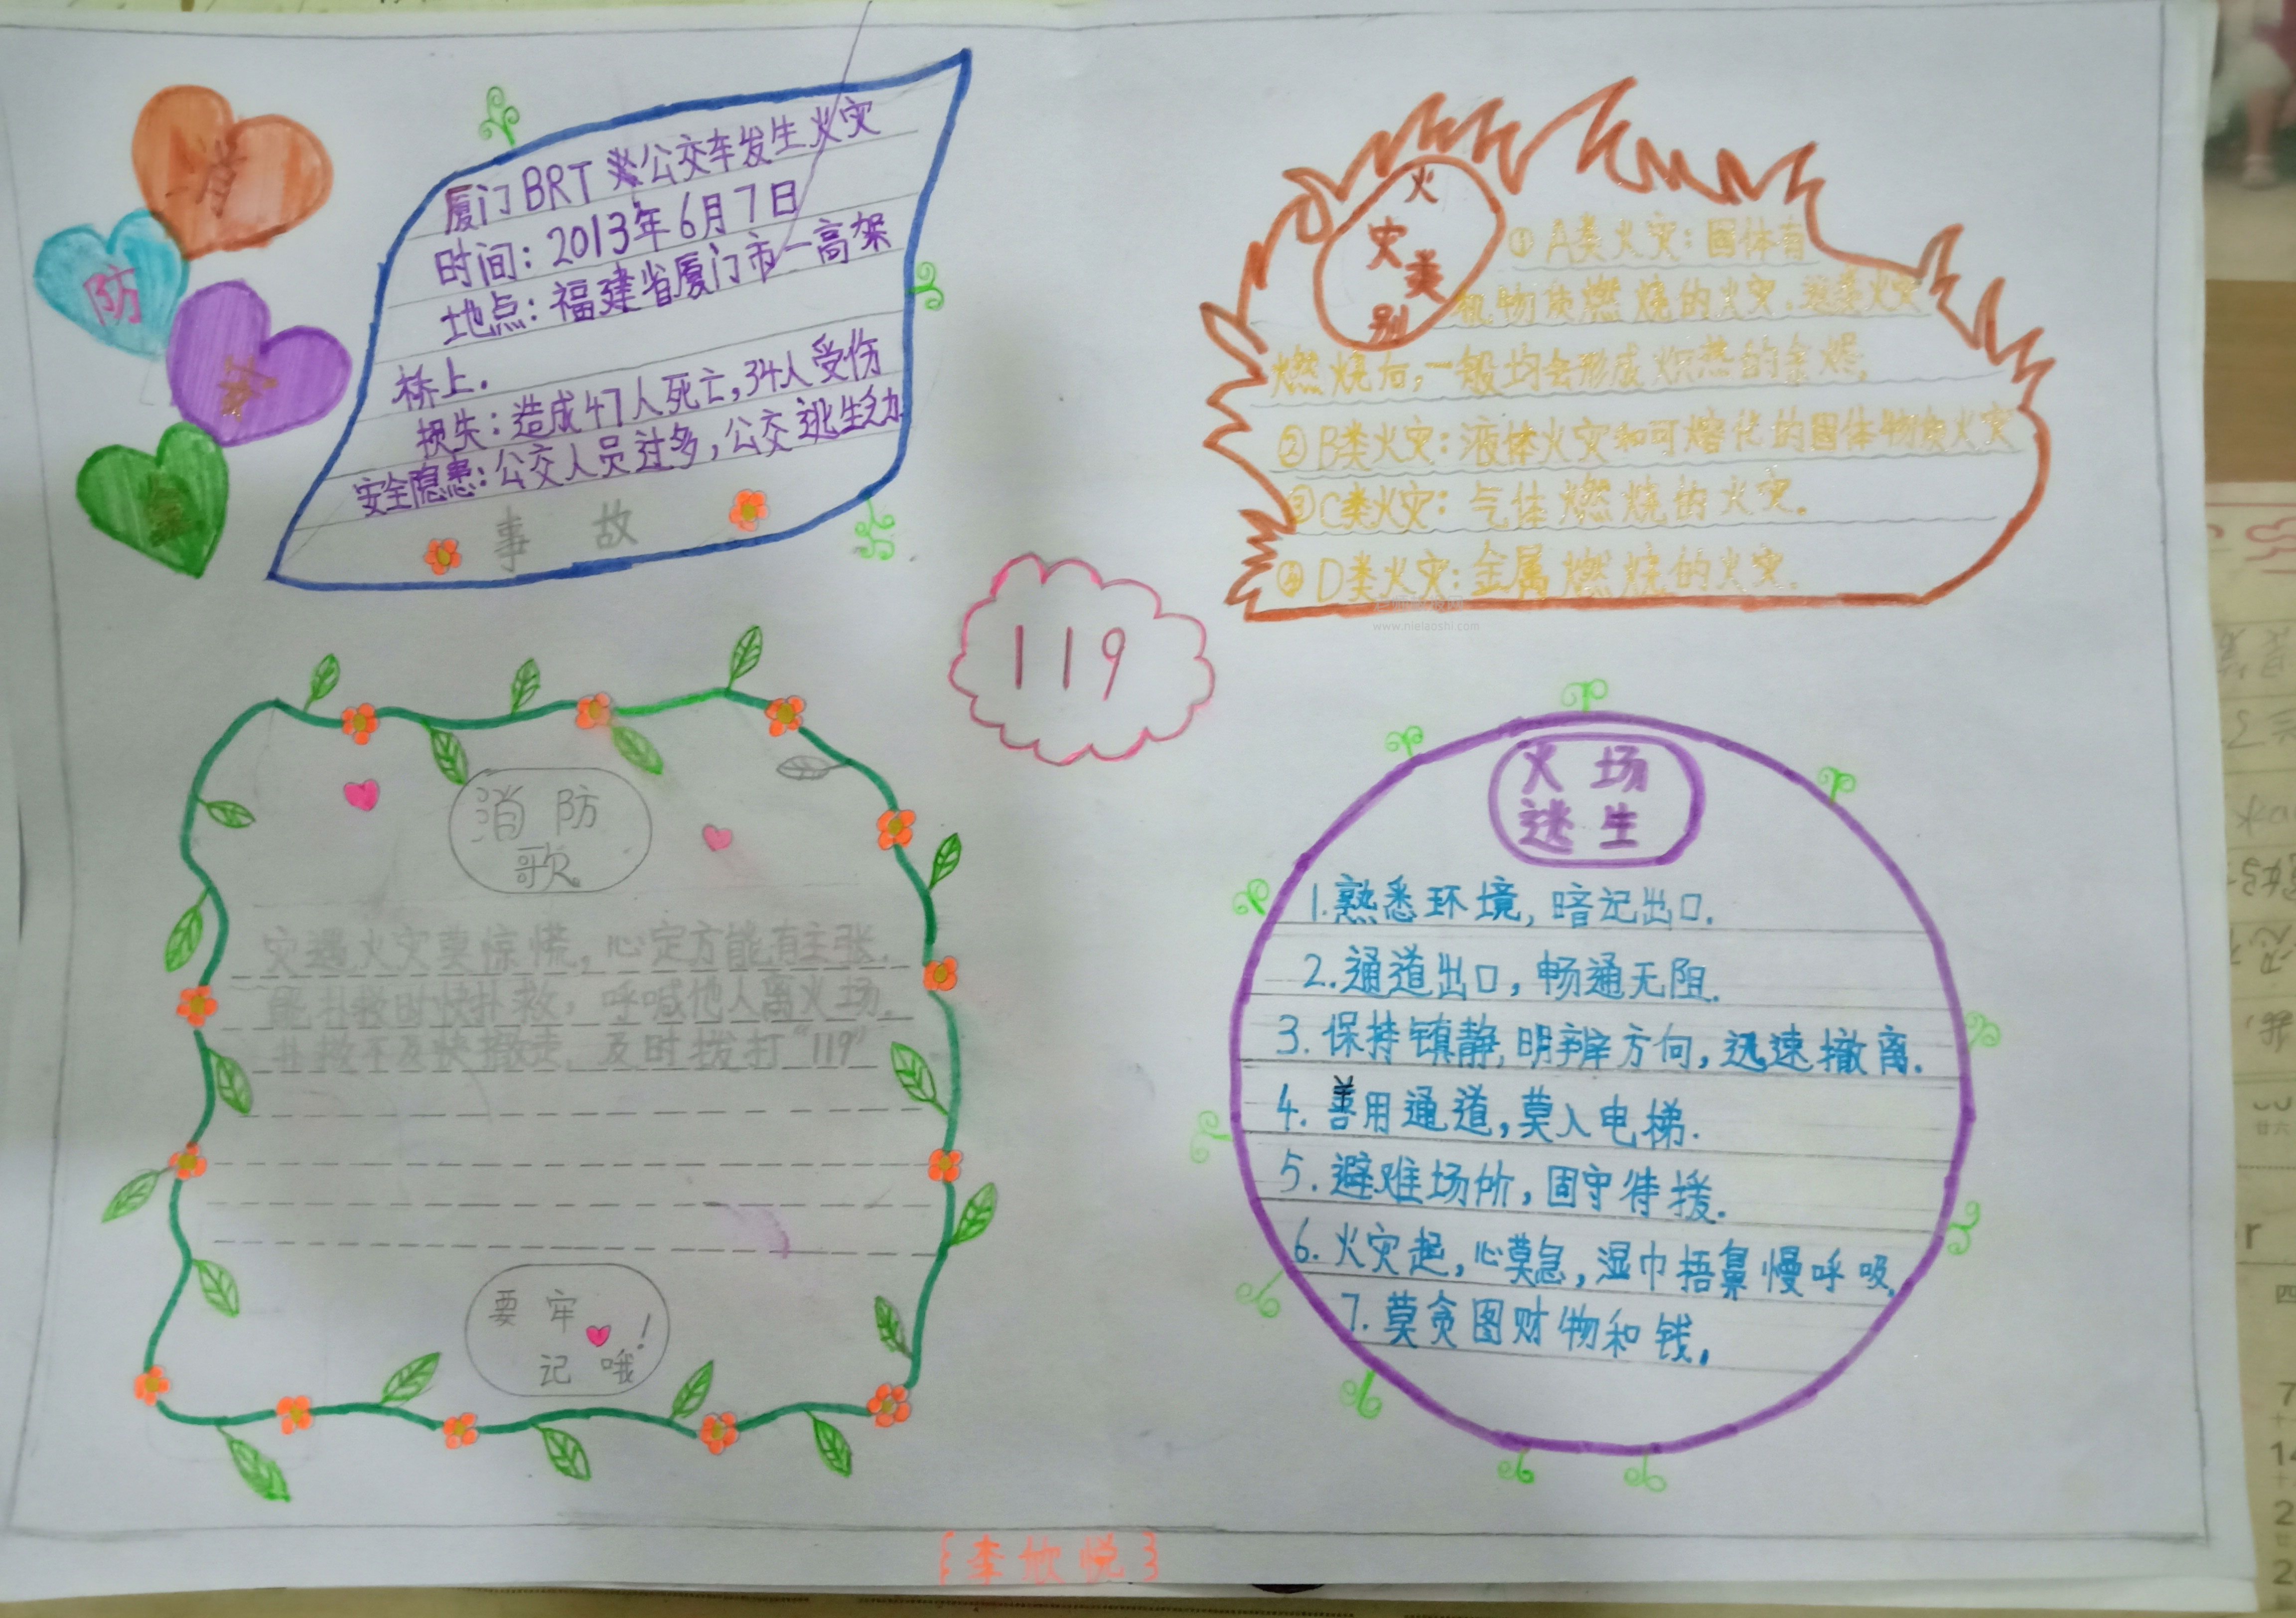 消
防
安
全
厦门BRT公交车发生火灾
时间：2013年6月7日
地点：福建省厦门市一高架
桥上.
损失：造成47人死亡，34人受伤
安全隐患：公交人员过多，公交逃生幼
事故
火灾类别
①A类火灾：固体有
机物质燃烧的火灾.这类火灾
燃烧后，一般均会形成炽热的余烬.
②B类火灾：液体火灾和可熔化的固体物质火灾
③C类火灾：气体燃烧的火灾.
④D类火灾：金属燃烧的火灾.
www.nielaoshi.com
119
消防
歌
灾遇火灾要惊慌，心定方能有主张.
能扑救时快扑救，呼喊他人离火场.
扑救不及快撤走，及时拨打“119”
要牢
记哦！
火场
逃生
1.熟悉环境，暗记出口.
2.通道出口，畅通无阻.
3.保持镇静，明辨方向，迅速撤离.
4.善用通道，莫入电梯.
5.避难场所，固守待援.
6.火灾起，心莫急，湿巾捂鼻慢呼吸.
7.莫贪图财物和钱.
{李欣悦}